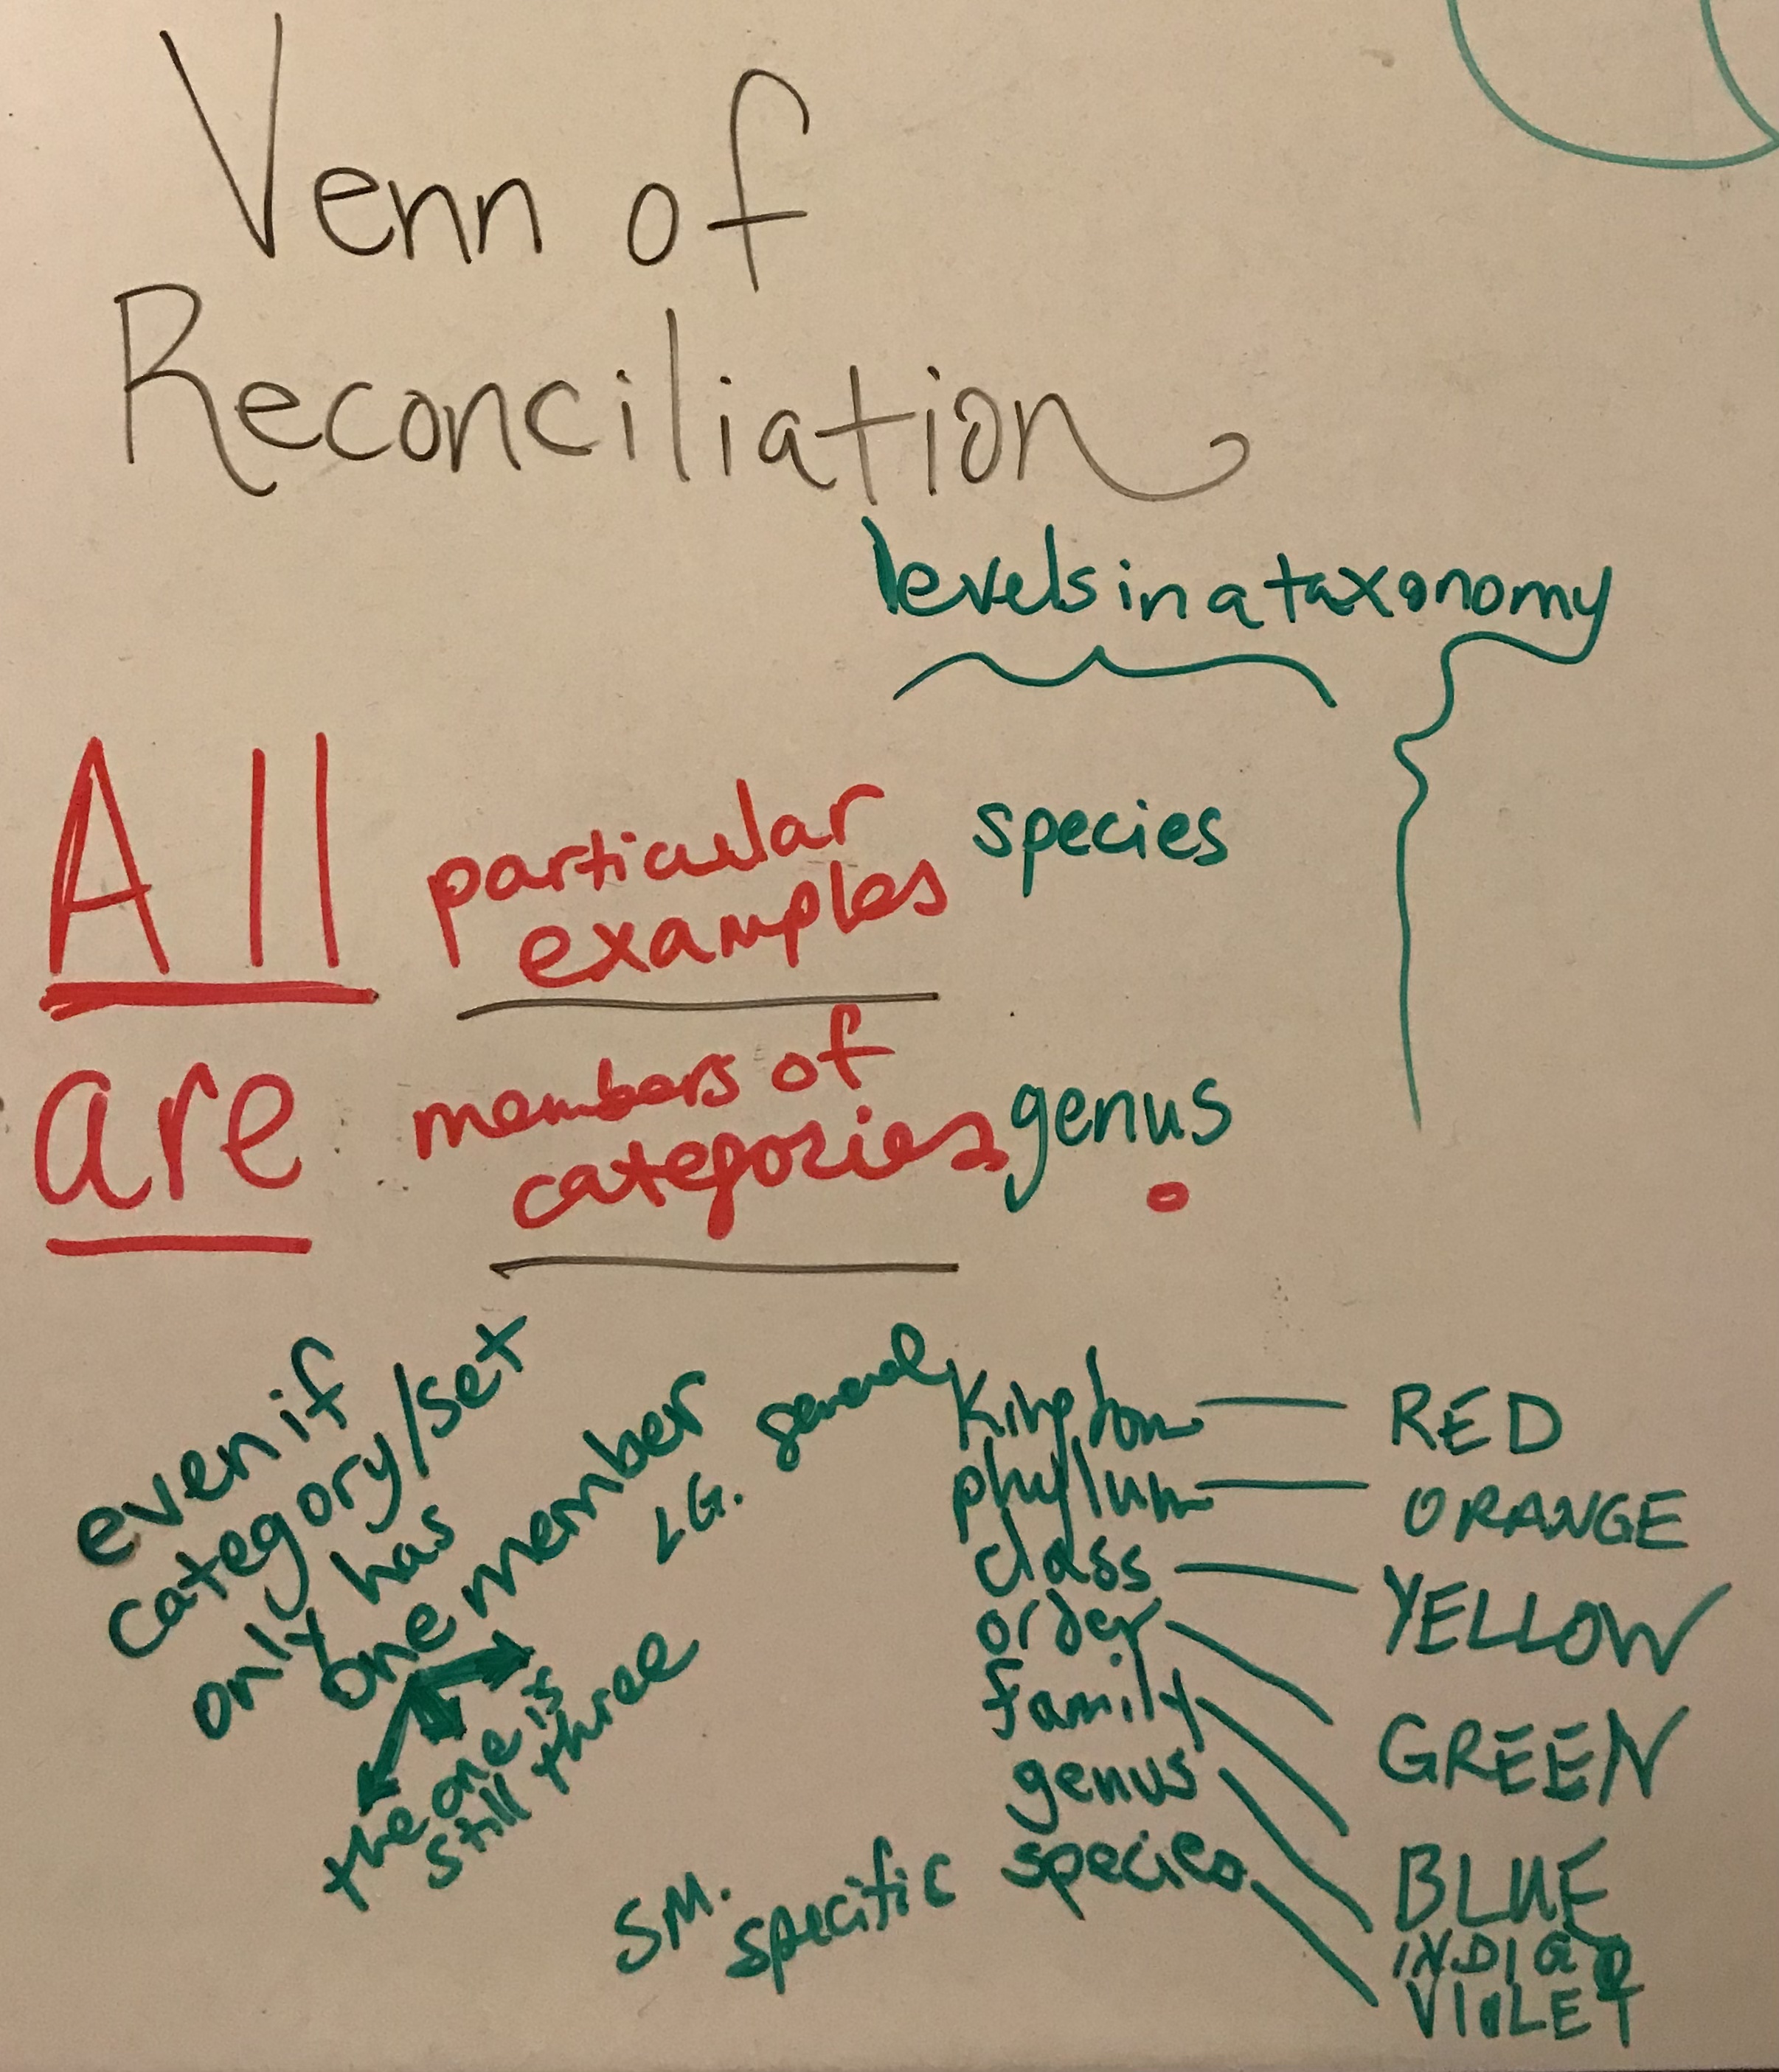 Venn of
Reconciliation
levels in a taxonomy
All particular
examples species
are members of
categories genus.
even if
category/set
only has
one member
the one is
still three
LG. general
Kingdom RED
phylum ORANGE
class YELLOW
order GREEN
family BLUE
genus INDIGO
species VIOLET
SM. specific